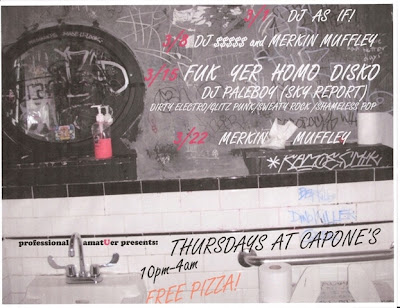 3/1 DJ AS IF!
3/8 DJ $$$$$ and MERKIN MUFFLEY
3/15 FUK YER HOMO DISKO
DJ PALEBOY (SKY REPORT)
DIRTY ELECTRO/GLITZ PUNK/SWEATY ROCK /SHAMELESS POP
3/22 MERKIN MUFFLEY
professional amatUer presents:
THURSDAYS AT CAPONE'S
10pm-4am
FREE PIZZA!